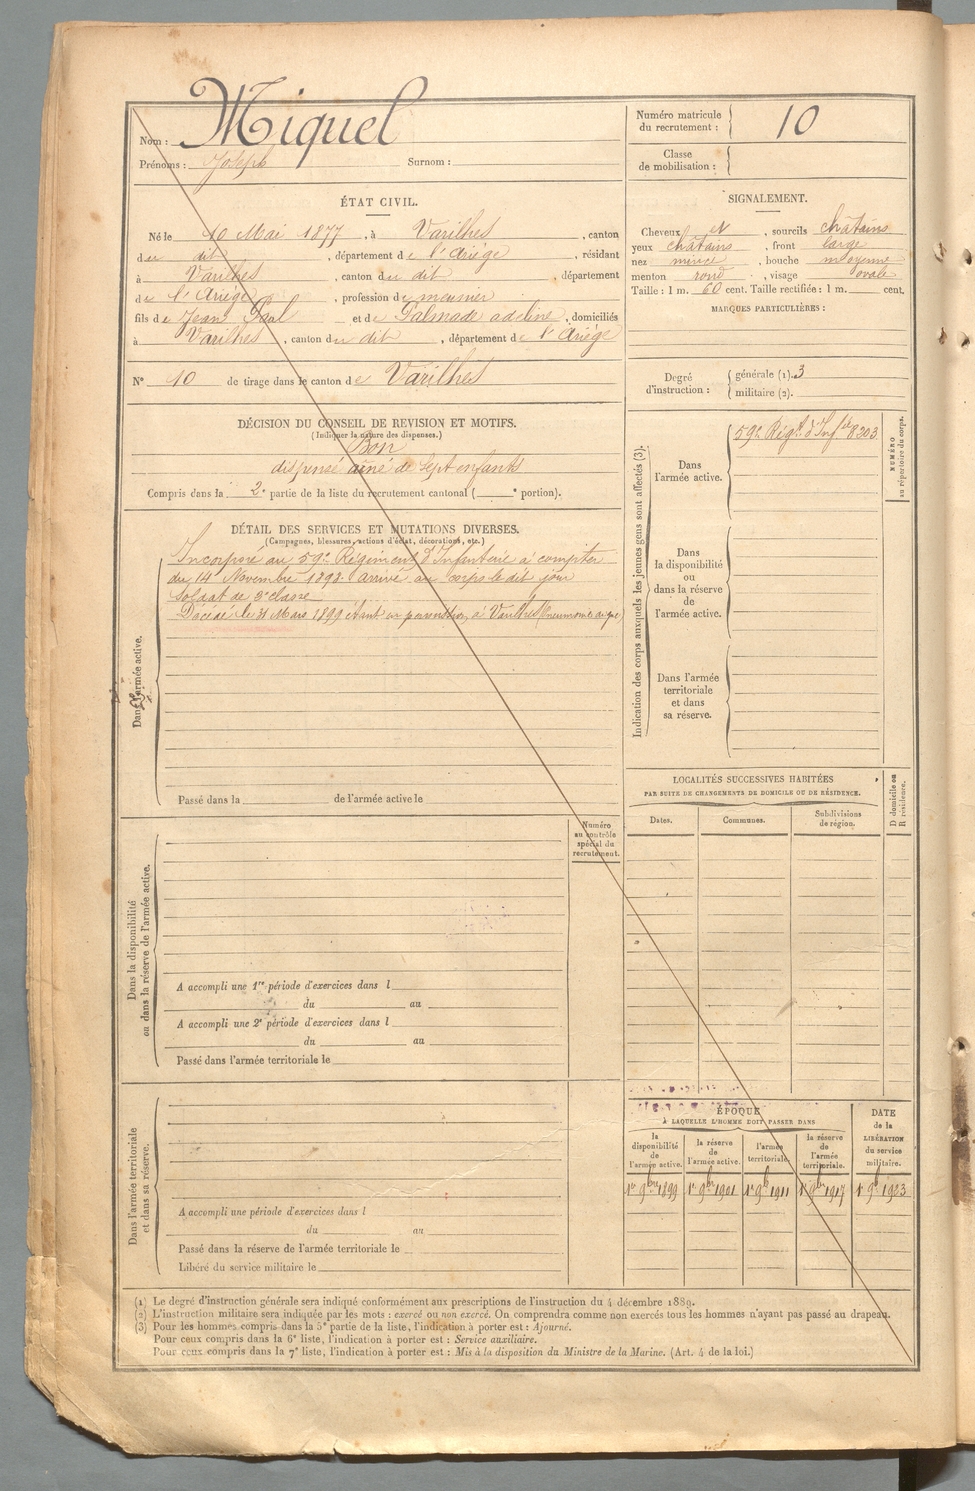 Nom : Miquel
Prénoms : Joseph Surnom :
Numéro matricule du recrutement : 10
Classe de mobilisation :
ÉTAT CIVIL.
Né le 10 Mai 1877, à Varilhes, canton
du dit, département de l'Ariège, résidant
à Varilhes, canton du dit, département
de l'Ariège, profession de meunier
fils de Jean Paul et de Palmade adeline, domiciliés
à Varilhes, canton du dit, département de l'Ariège
N° 10 de tirage dans le canton de Varilhes
SIGNALEMENT.
Cheveux et, sourcils châtains
yeux châtains, front large
nez mince, bouche moyenne
menton rond, visage ovale
Taille : 1 m. 60 cent. Taille rectifiée : 1 m. cent.
MARQUES PARTICULIÈRES :
Degré d'instruction : générale (1). 3
militaire (2).
DÉCISION DU CONSEIL DE REVISION ET MOTIFS.
(Indiquer la nature des dispenses.)
Bon
dispensé aîné de sept enfants
Compris dans la 2e partie de la liste du recrutement cantonal ( e portion).
DÉTAIL DES SERVICES ET MUTATIONS DIVERSES.
(Campagnes, blessures, actions d'éclat, décorations, etc.)
Dans l'armée active.
Incorporé au 59e Régiment d'Infanterie à compter
du 14 Novembre 1898. arrivé au corps le dit jour
Soldat de 2e classe
Décédé le 31 Mars 1899 étant en permission, à Varilhes
Passé dans la de l'armée active le
Indication des corps auxquels les jeunes gens sont affectés (3).
Dans l'armée active.
59e Régt d'Infie 8303
NUMÉRO au répertoire du corps.
Dans la disponibilité ou dans la réserve de l'armée active.
Dans l'armée territoriale et dans sa réserve.
LOCALITÉS SUCCESSIVES HABITÉES
PAR SUITE DE CHANGEMENTS DE DOMICILE OU DE RÉSIDENCE.
Dates. Communes. Subdivisions de région. D domicile ou R résidence.
Dans la disponibilité ou dans la réserve de l'armée active.
Numéro au contrôle spécial du recrutement.
A accompli une 1re période d'exercices dans l
du au
A accompli une 2e période d'exercices dans l
du au
Passé dans l'armée territoriale le
Dans l'armée territoriale et dans sa réserve.
A accompli une période d'exercices dans l
du au
Passé dans la réserve de l'armée territoriale le
Libéré du service militaire le
ÉPOQUE
À LAQUELLE L'HOMME DOIT PASSER DANS
la disponibilité de l'armée active. la réserve de l'armée active. l'armée territoriale. la réserve de l'armée territoriale. DATE de la LIBÉRATION du service militaire.
1er 9bre 1899 1er 9bre 1901 1er 9b 1911 1er 9bre 1917 1er 9b 1923
(1) Le degré d'instruction générale sera indiqué conformément aux prescriptions de l'instruction du 4 décembre 1889.
(2) L'instruction militaire sera indiquée par les mots : exercé ou non exercé. On comprendra comme non exercés tous les hommes n'ayant pas passé au drapeau.
(3) Pour les hommes compris dans la 5e partie de la liste, l'indication à porter est : Ajourné.
Pour ceux compris dans la 6e liste, l'indication à porter est : Service auxiliaire.
Pour ceux compris dans la 7e liste, l'indication à porter est : Mis à la disposition du Ministre de la Marine. (Art. 4 de la loi.)